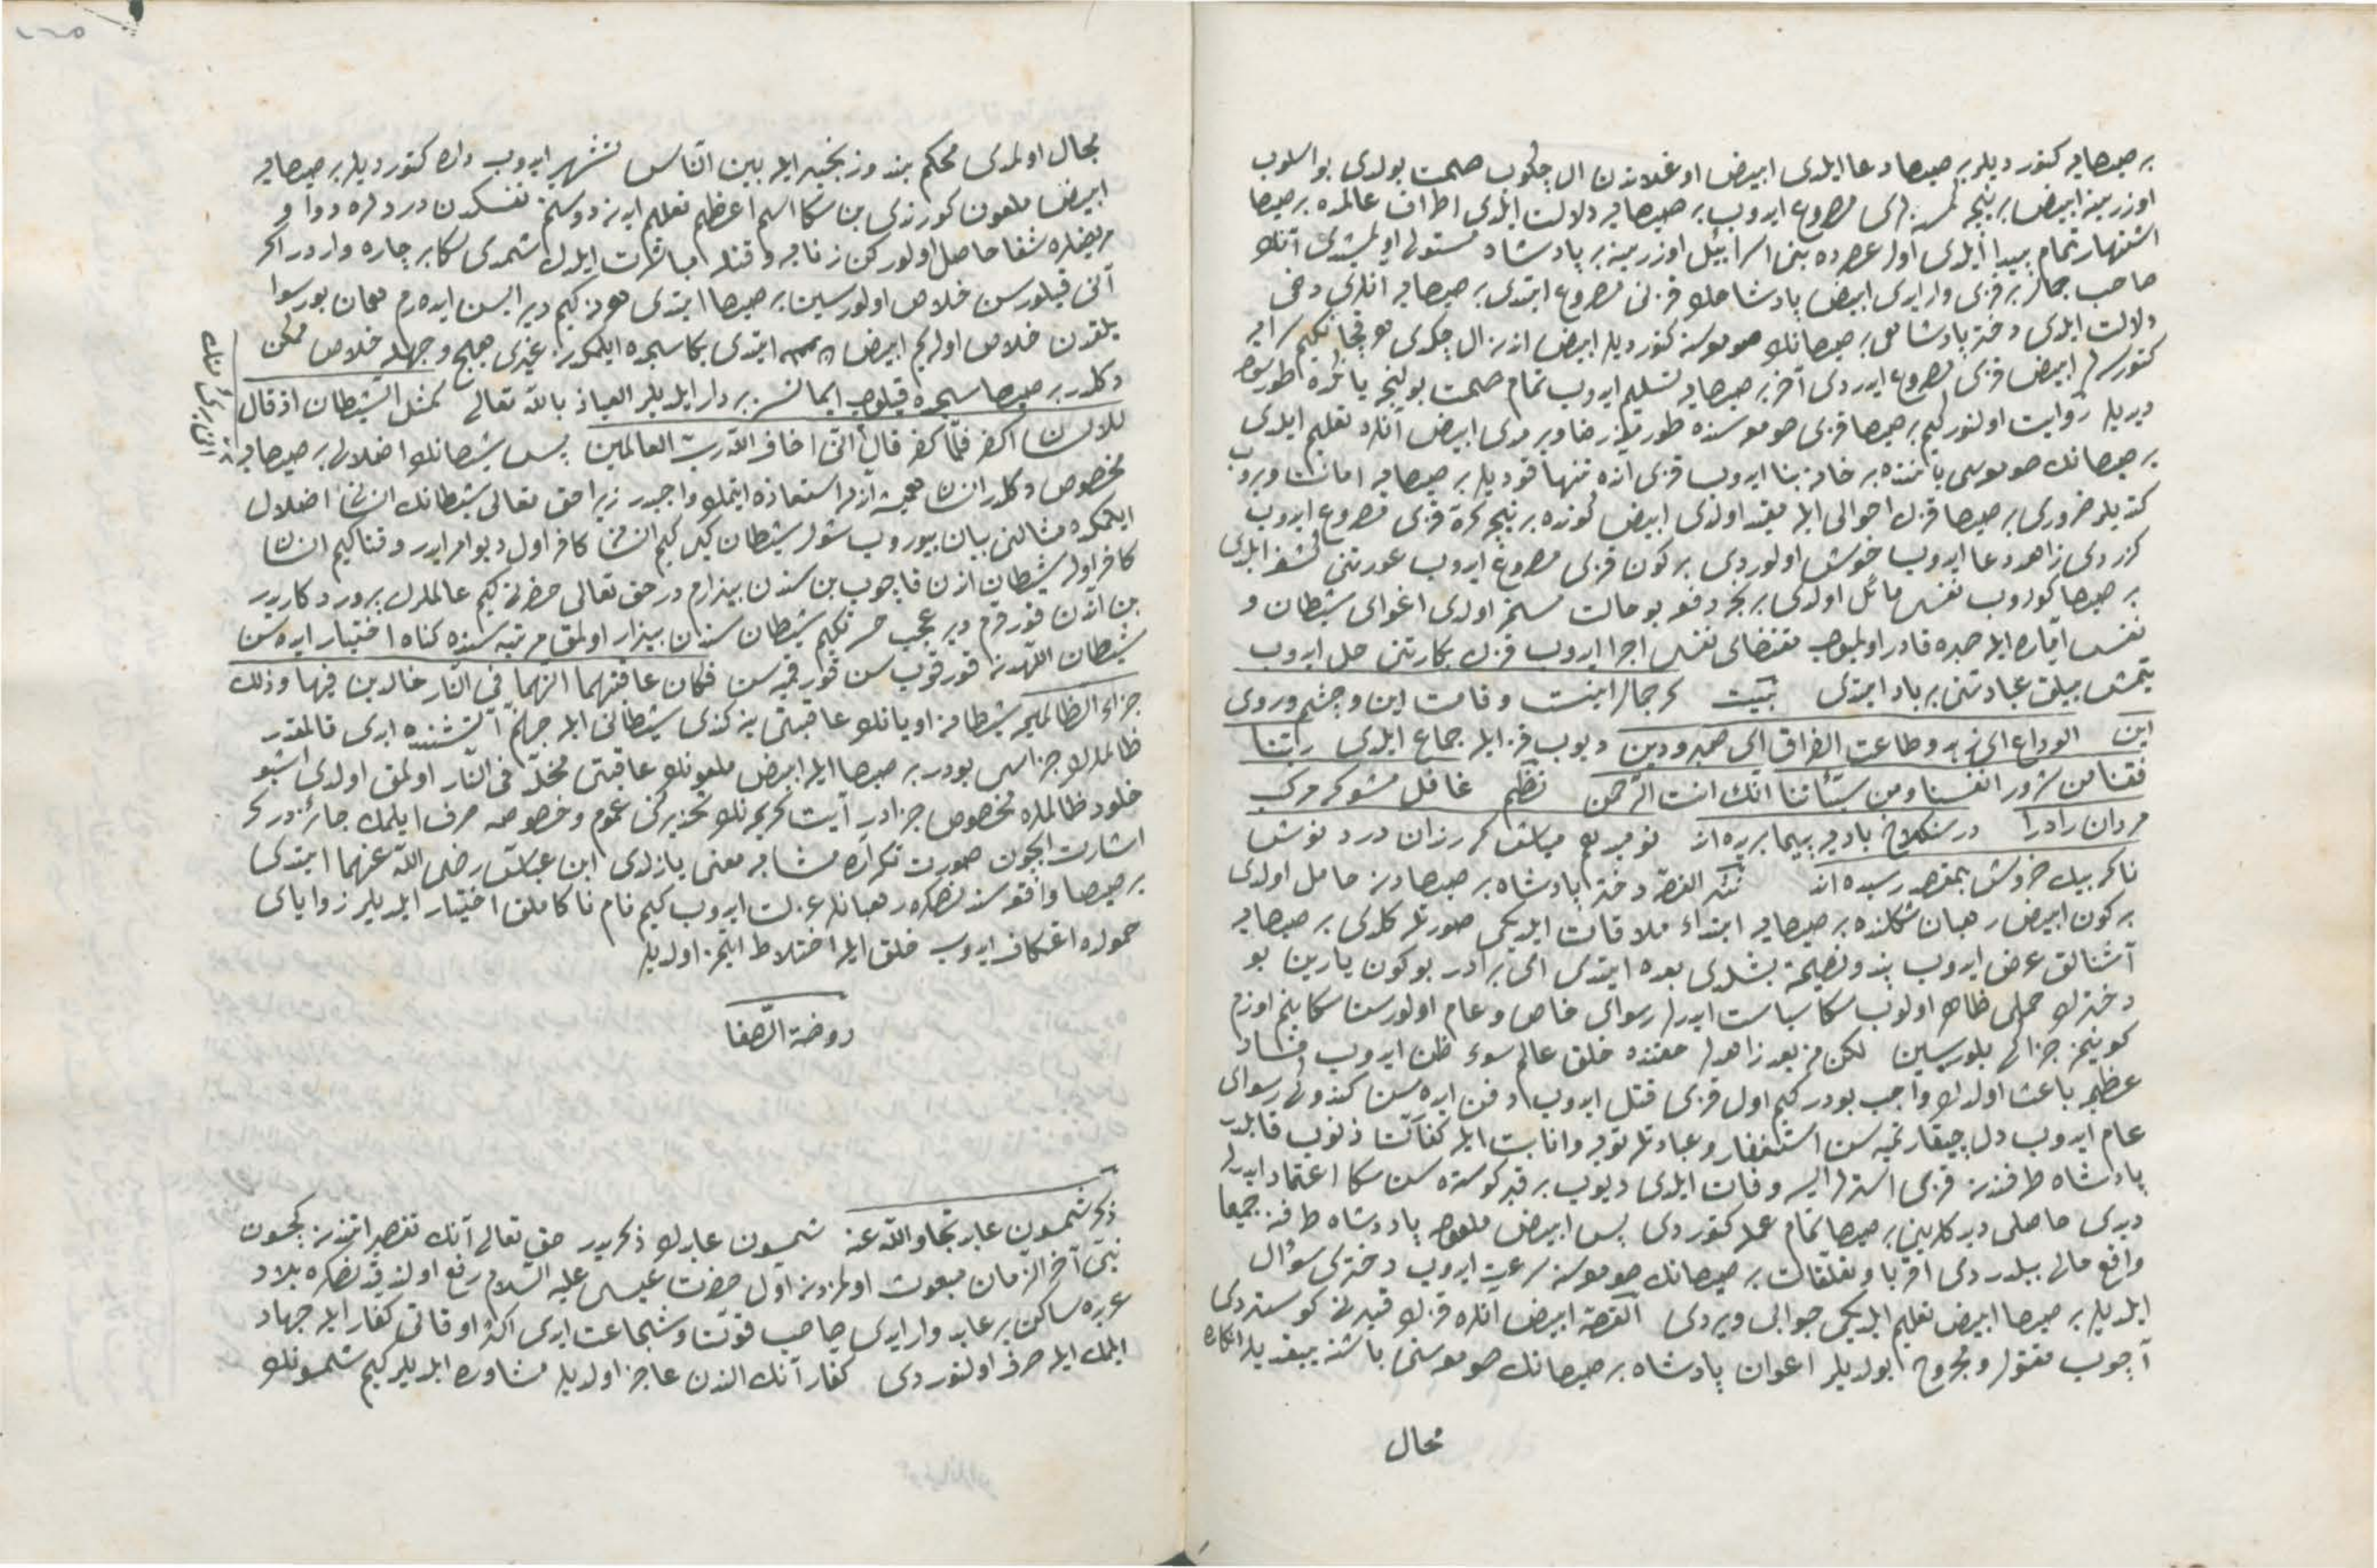 برصیصایه کتوردیلر برصیصا دعا ایلدی ابیض اوغلاندن ال چکوب صحت بولدی بو اسلوب
اوزرینه ابیض بر نیجه کمسنه‌لری مصروع ایدوب برصیصایه دلالت ایلدی اطراف عالمده برصیصا
اشتهار تمام پیدا ایلدی اول عصرده بنی اسرائیل اوزرینه بر پادشاه مستولی اولمشدی آنك
صاحب جمال بر قزی وار ایدی ابیض پادشاهك قزنی مصروع ایتدی برصیصایه انلری دخی
دلالت ایلدی دختر پادشاهی برصیصانك صومعه‌سنه کتوردیلر ابیض اندن ال چکدی
کتورسلر ابیض قزی مصروع ایدردی آخر برصیصایه تسلیم ایدوب تمام صحت بولنجه یانکزده طورسون
دیدیلر روایت اولنور کیم برصیصا قزی صومعه‌سنده طورمغه رضا ویرمدی ابیض آنلره تعلیم ایلدی
برصیصانك صومعه‌سی یاننده بر خانه بنا ایدوب قزی انده تنها قودیلر برصیصایه امانت ویروب
کتدیلر ضروری برصیصا قزك احوالی ایله مقید اولدی ابیض کونده بر نیجه کره قزی مصروع ایدوب
کزردی زاهد دعا ایدوب خوش اولوردی بر کون قزی مصروع ایدوب عورتنی کشف ایلدی
برصیصا کوروب نفسی مائل اولدی بر نیجه دفعه بو حالت مستمر اولدی اغوای شیطان و
نفس اماره ایله صبره قادر اولمیوب مقتضای نفسی اجرا ایدوب قزك بکارتنی حل ایدوب
یتمش ییللق عبادتنی برباد ایتدی بیت کر جمال اینست و قامت این و چشم و روی
این الوداع ای زهد و طاعت الفراق ای صبر و دین دیوب قز ایله جماع ایلدی ربنا
فقنا من شرور انفسنا ومن سیئاتنا انك انت الرحمن نظم غافل مشو که مرکب
مردان راه را در سنکلاخ بادیه پیها بریده‌اند نومید هم مباش که رندان درد نوش
ناکه بیك خروش بمنزل رسیده‌اند تتمه القصه دختر پادشاه برصیصادن حامل اولدی
بر کون ابیض رهبان شکلنده برصیصایه ابتداء ملاقات ایلدیکی صورتله کلدی برصیصایه
آشنالق عرض ایدوب پند و نصیحته بشلدی بعده ایتدی ای برادر بو کون یارین بو
دخترك حملی ظاهر اولوب سکا سیاست ایدرلر رسوای خاص و عام اولورسن سکا بنم اوزم
کوینر جزاکی بلورسین لکن من بعد زاهدلر حقنده خلق عالم سوء ظن ایدوب فساد
عظیم باعث اولدك واجب بودر کیم اول قزی قتل ایدوب دفن ایده‌سن کندوکی رسوای
عام ایدوب دل چیقارتمیه‌سن استغفار و عبادتله توبه و انابت ایله کفارت ذنوب قابلدر
پادشاه طرفندن قزی استرلرایسه وفات ایلدی دیوب بر قبر کوستره‌سن سکا اعتماد ایدرلر
دیدی حاصلی دیدکلرین برصیصا تمام عمله کتوردی پس ابیض ملعون پادشاه طرفنه جمیعا
واقع حالی بیلدردی اقربا و تعلقات برصیصانك صومعه‌سنه سرعت ایدوب دختری سؤال
ایلدیلر برصیصا ابیض تعلیم ایلدیکی جوابی ویردی القصه ابیض انلره قزك قبرینی کوستردی
آچوب مقتول و مجروح بولدیلر اعوان پادشاه برصیصانك صومعه‌سنی باشنه ییقدیلر انکاره
مجال
مجال اولمدی محکم بند و زنجیر ایله بین الناس تشهیر ایدوب داره کتوردیلر برصیصایه
ابیض ملعون کورندی بن سکا اسم اعظم تعلیم ایدن دوستم نفسکدن دردلره دوا و
مریضلره شفا حاصل اولورکن زنایه و قتله مباشرت ایلدك شمدی سکا بر چاره واردر اکر
آنی قیلورسن خلاص اولورسین برصیصا ایتدی هر نه کیم دیرایسن ایده‌رم همان بو رسوا
یلقدن خلاص اولایم ابیض ایتدی بکا سجده ایلمکدن غیری هیچ وجهله خلاص ممکن
دکلدر برصیصا سجده قیلوب ایمانسز بردار ایلدیلر العیاذ بالله تعالی کمثل الشیطان اذ قال
للانسان اکفر فلما کفر قال انی اخاف الله رب العالمین پس شیطانك اضلالی برصیصایه
مخصوص دکلدر انسان همیشه اندن استعاذه ایتمك واجبدر زیرا حق تعالی شیطانك انسانی اضلال
ایلمکده مثالنی بیان بیوروب شول شیطان کبی کیم انسانه کافر اول دیو امر ایدر وقتاکیم انسان
کافر اولر شیطان اندن قاچوب بن سندن بیزارم در حق تعالی حضرتنه کیم عالملرك پروردکاریدر
بن آندن قورقرم دیر عجب حسرتکیم شیطان سندن بیزار اولمق مرتبه‌سنده کناه اختیار ایده‌سن
شیطان اللهدن قورقوب سن قورقمیه‌سن فکان عاقبتهما انهما فی النار خالدین فیها وذلك
جزاء الظالمین شیطانه اویانك عاقبتی ینه کندی شیطانی ایله جهنم آتشنده ابدی قالمقدر
ظالملرك جزاسی بودر برصیصا ایله ابیض ملعونك عاقبتی مخلد فی النار اولمق اولدی اشبو
خلود ظالملره مخصوص جزادر آیت کریمه‌نك تحذیرکنی عموم و خصوصه صرف ایلمك جائزدر که
اشارت ایچون صورت تکرارده مشابه معنی یازلدی ابن عباس رضی الله عنهما ایتدی
برصیصا واقعه‌سندنصکره رهبانلر عزلت ایدوب کیم نام ناکاملق اختیار ایلدیلر زوایای
خموله اعتکاف ایدوب خلق ایله اختلاط ایتمز اولدیلر
روضة الصفا
ذکر شمسون عابد تجاوالله عنه شمسون عابدك ذکریدر حق تعالی آنك تقصیراتندن کچسون
نبی آخر الزمان مبعوث اولمزدن اول حضرت عیسی علیه السلام رفع اولندقدنصکره بلاد
عربده ساکن بر عابد وار ایدی صاحب قوت و شجاعت ایدی اکثر اوقاتی کفار ایله جهاد
ایلمك ایله صرف اولنوردی کفار آنك الندن عاجز اولدیلر مشاوره ایلدیلر کیم شمسونك